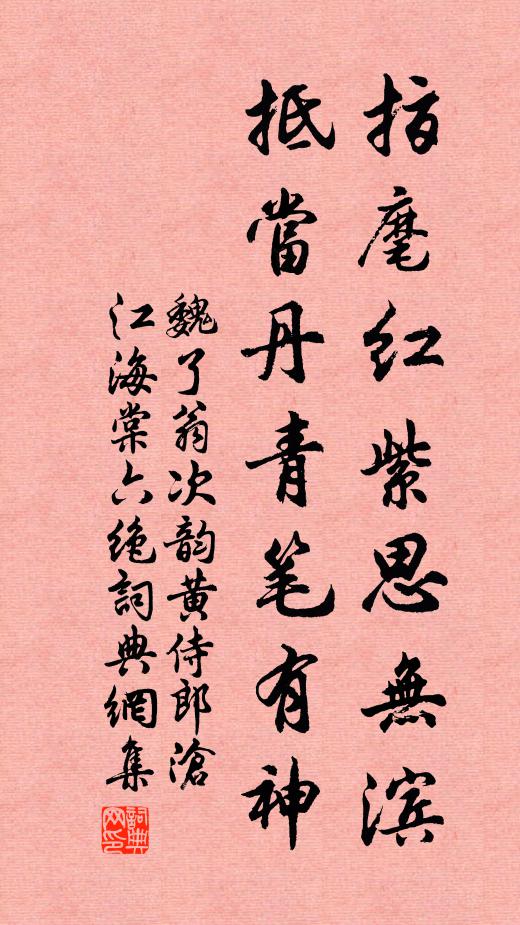 指麾红紫思無滨
抵當丹青笔有神
魏了翁次韵黄侍郎滄
江海棠六绝詞典網集
詞典网印